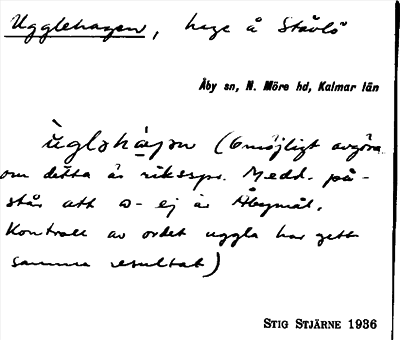 Ugglehagen, hage å Stävlö
Åby sn, N. Möre hd, Kalmar län
ùgləhàgən (Omöjligt avgöra
om detta är riksspr. Medd. på-
står att ə- ej är Åbymål.
Kontroll av ordet uggla har gett
samma resultat)
STIG STJÄRNE 1936